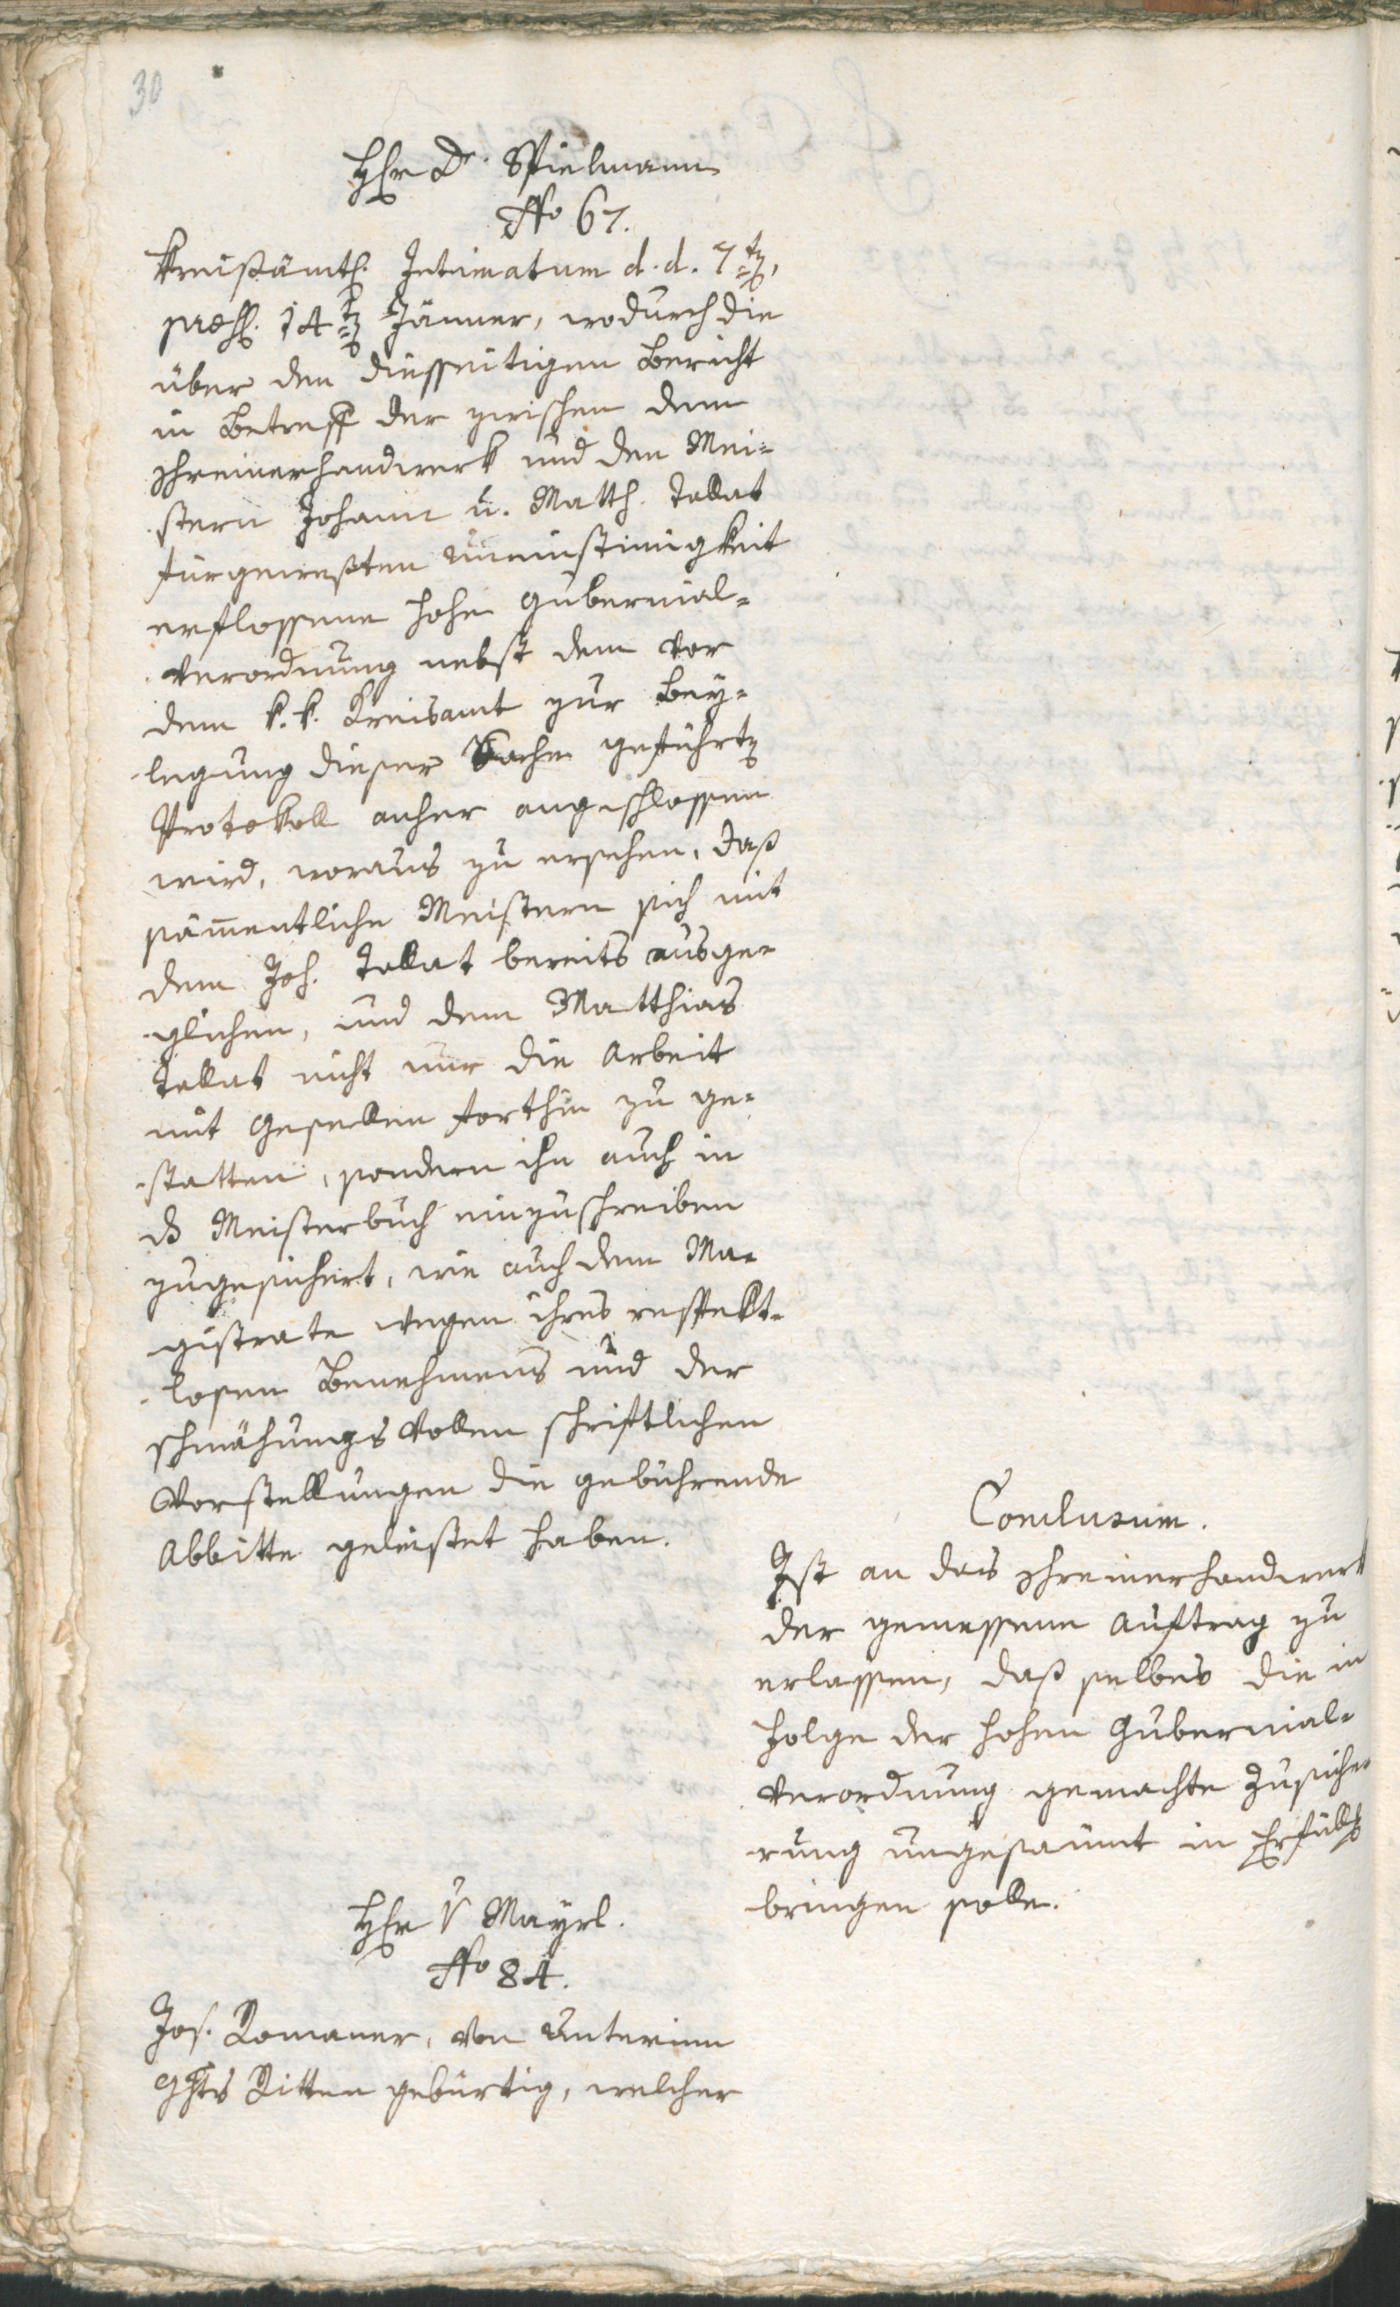 30
Hr Dr. Spielmann
No 67.
Kreißämtl. Intimatum d. d. 7ten,
praes. 14ten Jänner, wodurch die
über den diesseitigen Bericht
in Betreff der zwischen dem
Schreinerhandwerk und den Mei-
stern Johann u. Matth. Tallat
fürgeweßten Uneinstimigkeit
erflossene hohe Gubernial-
Verordnung nebst dem vor
dem k. k. Kreisamt zur Bey-
legung dieser Sache geführten
Protokoll anher angeschlossen
wird, woraus zu ersehen, daß
sämmentliche Meistern sich mit
dem Joh. Tallat bereits ausge-
glichen, und dem Matthias
Tallat nicht nur die Arbeit
mit Gesellen forthin zu ge-
statten, sondern ihn auch in
ds Meisterbuch einzuschreiben
zugesichert, wie auch dem Ma-
gistrate wegen ihres respekt-
losen Benehmens und der
schmähungs vollen schriftlichen
Vorstellungen die gebührende
Abbitte geleistet haben.
Conclusum.
Ist an das Schreinerhandwerk
der gemessene Auftrag zu
erlassen, daß selbes die in
Folge der hohen Gubernial-
Verordnung gemachte Zusiche-
rung ungesäumt in Erfüllg
bringen solle.
Hr v Mayrl.
No 84.
Jos. Romaner, von Unterinn
Ghts Ritten gebürtig, welcher